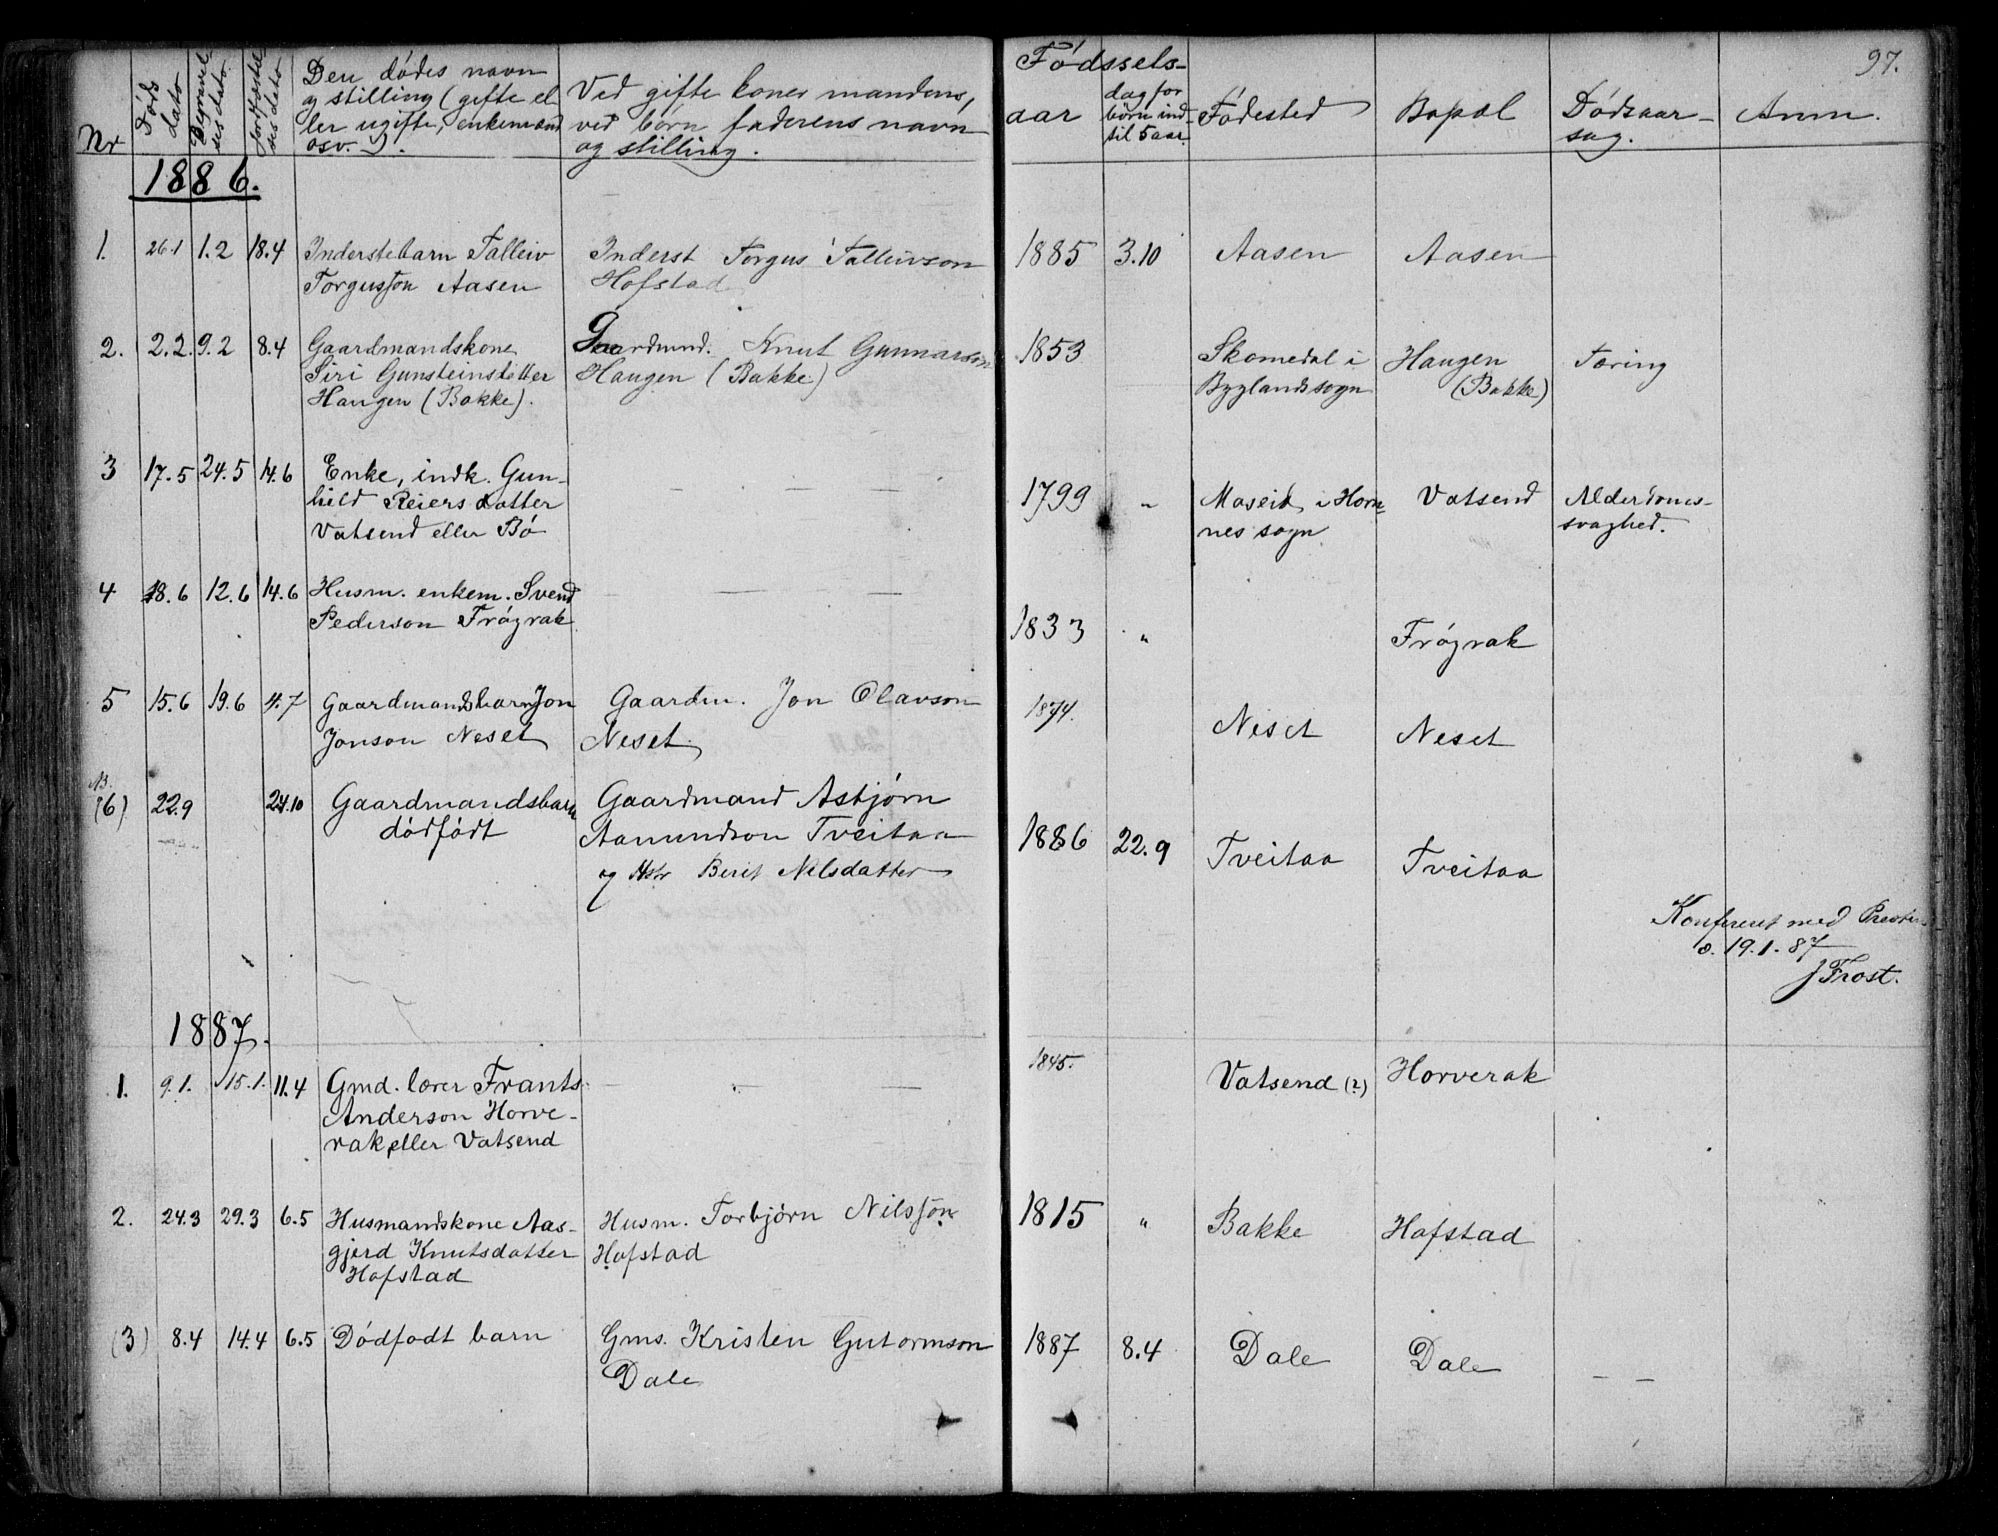 97.
Nr
Døds dato
Begravelsesdato
Jordfæstelsesdato
Den dødes navn
og stilling (gifte el-
ler ugifte, enkemand
osv.).
Ved gifte koner mandens,
ved børn faderens navn
og stilling.
Fødssels-
aar
dag for
børn ind-
til 5 aar.
Fødested
Bopæl
Dødsaar-
sag.
Anm.
1886.
1. 26.1 1.2 18.4 Inderstebarn Talleiv Inderst Torgus Talleivson 1885 3.10 Aasen Aasen
Torgusson Aasen Hofstad
2. 2.2. 9.2 8.4 Gaardmandskone Gaardmnd. Knut Gunnarson 1853 Skomedal i Haugen Tæring
Siri Gunsteinsdatter Haugen (Bakke) Byglandssogn (Bakke)
Haugen (Bakke).
3 17.5 24.5 14.6 Enke, indk. Gun- — — — 1799 " Moseid i Hor- Vatsend Alderdoms-
hild Reiersdatter nes sogn svaghed.
Vatsend eller Bø
4 8.6 12.6 14.6 Husm. enkem. Svend — — — 1833 " Frøyrak
Pederson Frøyrak
5 15.6 19.6 4.7 Gaardmandsbarn Jon Gaardm. Jon Olavson 1874. Neset Neset
Jonson Neset Neset
N.
(6) 22.9 24.10 Gaardmandsbarn Gaardmand Asbjørn 1886 22.9 Tveitaa Tveitaa
dødfødt Aamundson Tveitaa
og Hstr Berit Nilsdatter
Konfereret med Presten
d. 19.1.87
J Frost.
1887.
1. 9.1. 15.1. 11.4 Gmd. lærer Frants — — — 1845. " Vatsend (?) Horverak
Anderson Horve-
rak eller Vatsend
2. 24.3 29.3 6.5 Husmandskone Aas- Husm. Torbjørn Nilsson 1815 " Bakke Hofstad
gjerd Knutsdatter Hofstad
Hofstad
(3) 8.4 14.4 6.5 Dødfødt barn Gms. Kristen Gutormson 1887 8.4 Dale Dale — —
Dale